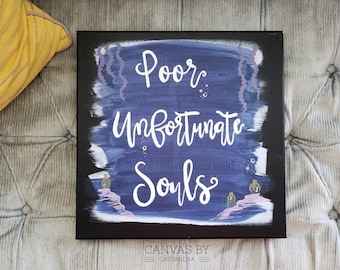 Poor
Unfortunate
Souls
CANVAS BY
CASSANDRA